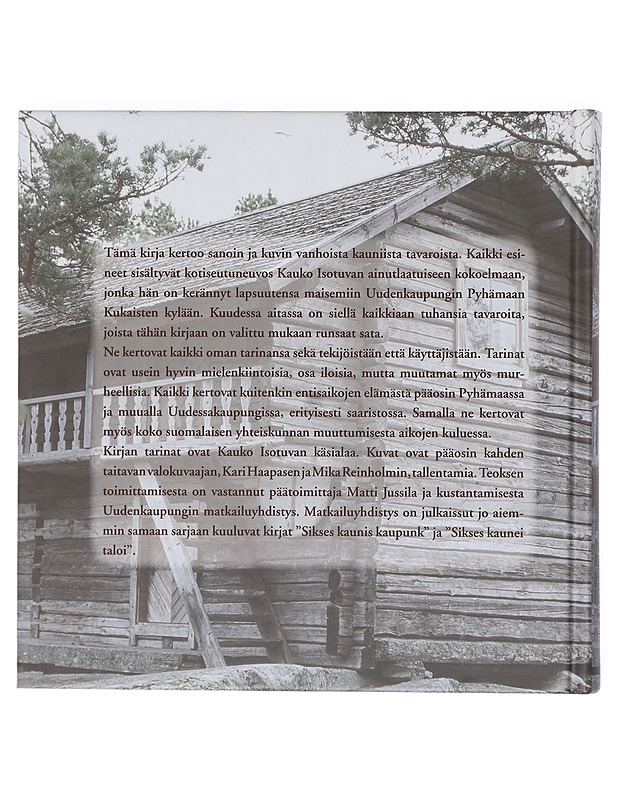 Tämä kirja kertoo sanoin ja kuvin vanhoista kauniista tavaroista. Kaikki esi-
neet sisältyvät kotiseutuneuvos Kauko Isotuvan ainutlaatuiseen kokoelmaan,
jonka hän on kerännyt lapsuutensa maisemiin Uudenkaupungin Pyhämaan
Kukaisten kylään. Kuudessa aitassa on siellä kaikkiaan tuhansia tavaroita,
joista tähän kirjaan on valittu mukaan runsaat sata.
Ne kertovat kaikki oman tarinansa sekä tekijöistään että käyttäjistään. Tarinat
ovat usein hyvin mielenkiintoisia, osa iloisia, mutta muutamat myös mur-
heellisia. Kaikki kertovat kuitenkin entisaikojen elämästä pääosin Pyhämaassa
ja muualla Uudessakaupungissa, erityisesti saaristossa. Samalla ne kertovat
myös koko suomalaisen yhteiskunnan muuttumisesta aikojen kuluessa.
Kirjan tarinat ovat Kauko Isotuvan käsialaa. Kuvat ovat pääosin kahden
taitavan valokuvaajan, Kari Haapasen ja Mika Reinholmin, tallentamia. Teoksen
toimittamisesta on vastannut päätoimittaja Matti Jussila ja kustantamisesta
Uudenkaupungin matkailuyhdistys. Matkailuyhdistys on julkaissut jo aiem-
min samaan sarjaan kuuluvat kirjat ”Sikses kaunis kaupunk” ja ”Sikses kaunei
taloi”.